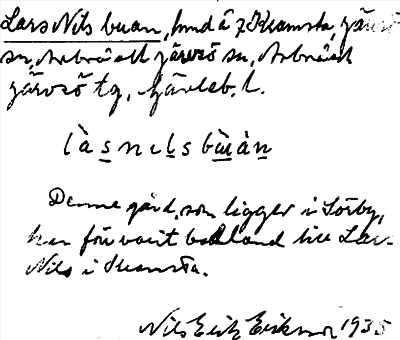 Lars Nils buan, hmd å 7 Kramsta, Järvsö
sn, Arbrå ock Järvsö sn, Arbrå ock
Järvsö tg, Gävleb. l.
làs nels bùàn
Denne gård, som ligger i Sörby,
har förr varit boland till Lars
Nils i Kramsta.
Nils Erik Eriksson 1935